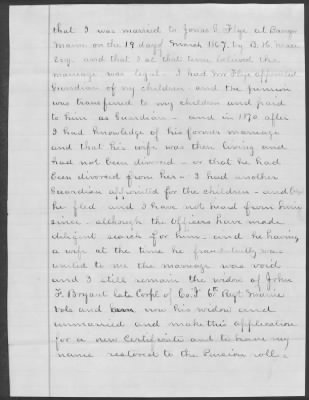 that I was married to Jonas E. Flye at Bangor
Maine on the 19 day of March 1867, by
Esq. and that I at that time believed the
marriage was legal - I had Mr Flye appointed
Guardian of my children - and the pension
was transferred to my children and paid
to him as Guardian - and in 1870 after
I had knowledge of his former marriage
and that his wife was then living and
had not been divorced - or that he had
been divorced from her - I had another
Guardian appointed for the children - and
he fled and I have not heard from him
since - although the Officers have made
diligent search for him - and he having
a wife at the time he fraudently was
united to me the marriage was void
and I still remain the widow of John
F. Bryant late Corpl of Co. F 6th Regt Maine
Vols and now his widow and
unmarried and make this application
for a new Certificate and to have my
name restored to the Pension roll -